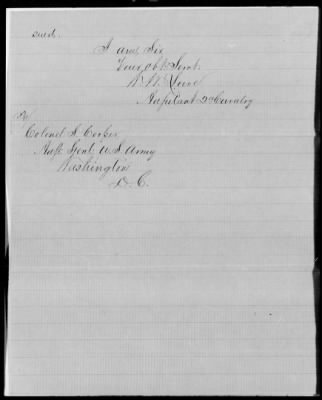 I am Sir
Your obt Servt
Adjutant 2d Cavalry
To
Colonel S. Cooper
Adjt Genl U S Army
Washington
D. C.